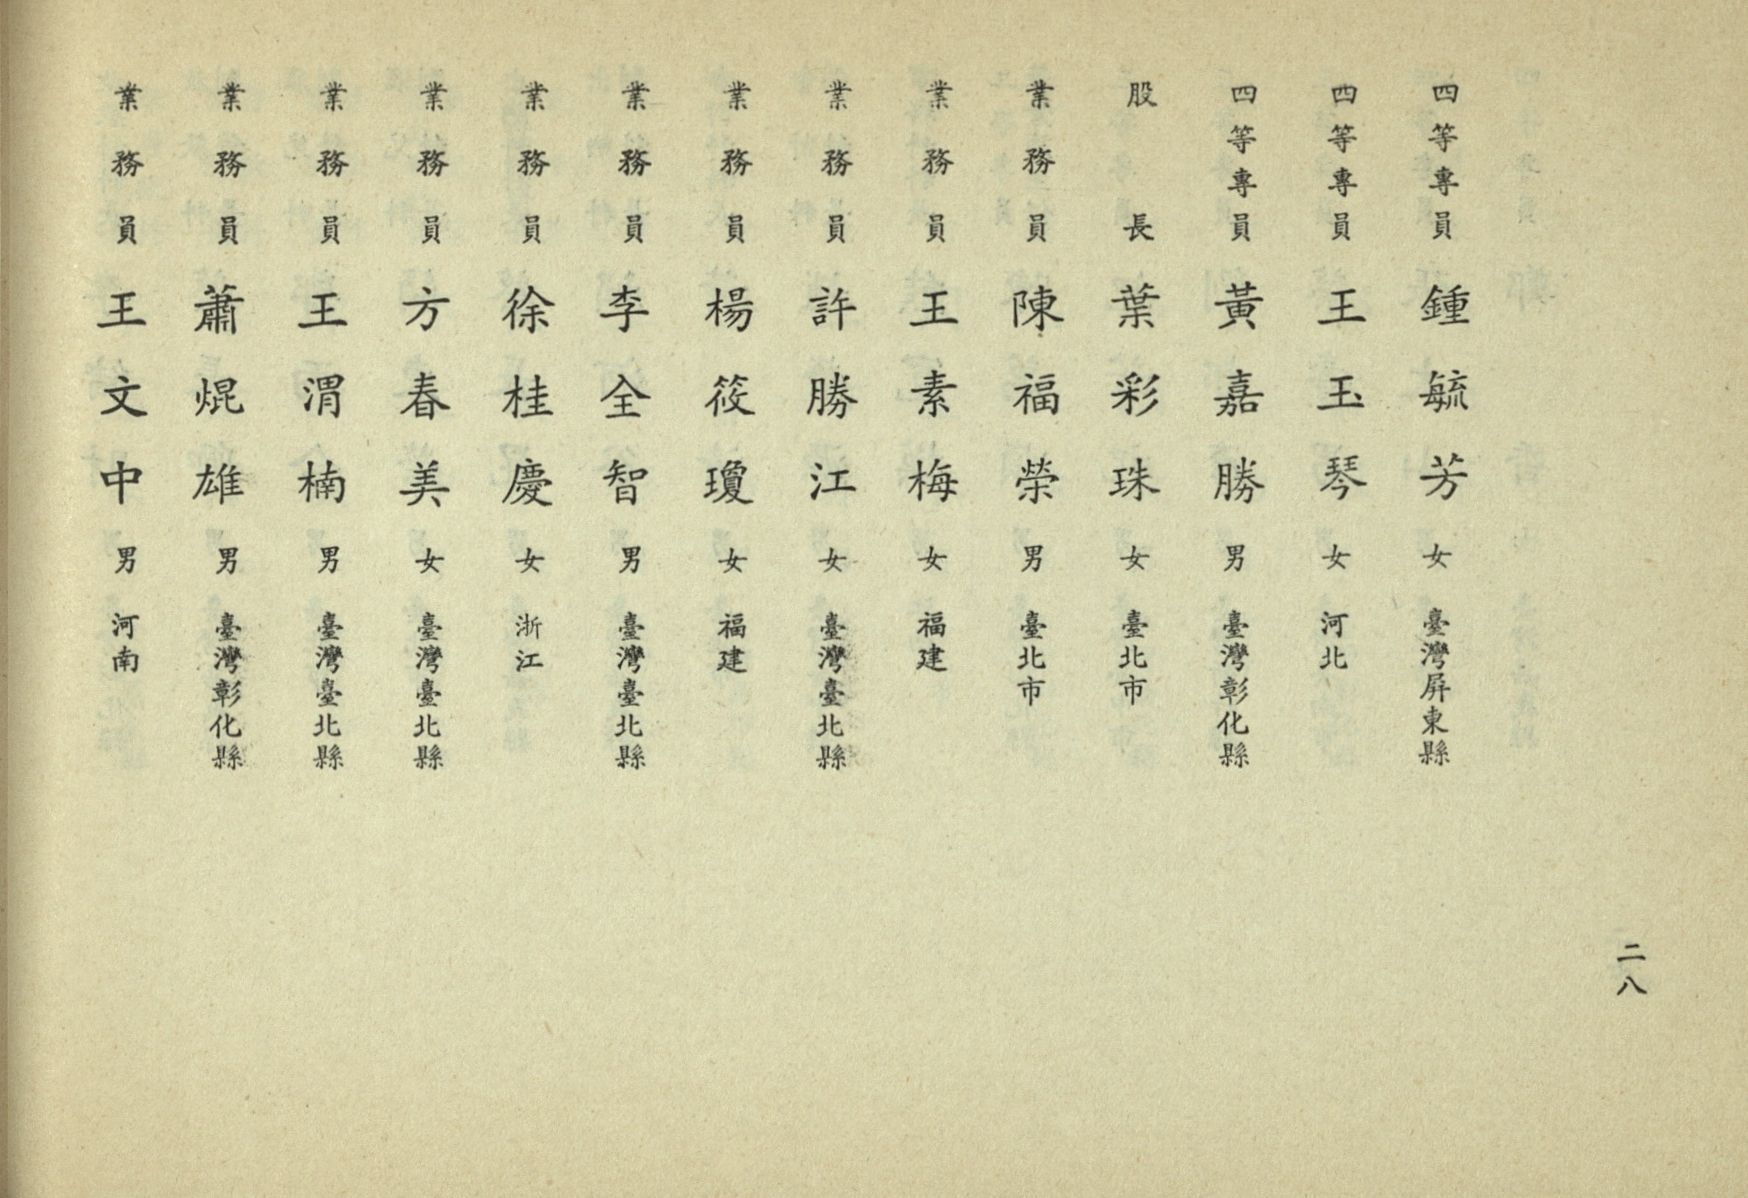 二八
四等專員 鍾毓芳 女 臺灣屏東縣
四等專員 王玉琴 女 河北
四等專員 黃嘉勝 男 臺灣彰化縣
股長 葉彩珠 女 臺北市
業務員 陳福榮 男 臺北市
業務員 王素梅 女 福建
業務員 許勝江 女 臺灣臺北縣
業務員 楊筱瓊 女 福建
業務員 李全智 男 臺灣臺北縣
業務員 徐桂慶 女 浙江
業務員 方春美 女 臺灣臺北縣
業務員 王渭楠 男 臺灣臺北縣
業務員 蕭焜雄 男 臺灣彰化縣
業務員 王文中 男 河南